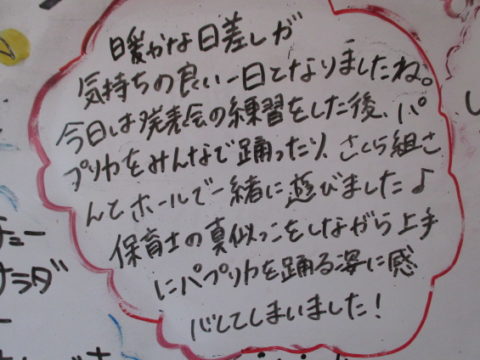 暖かな日差しが
気持ちの良い一日となりましたね。
今日は発表会の練習をした後、パ
プリカをみんなで踊ったり、さくら組さ
んとホールで一緒に遊びました♪
保育士の真似っこをしながら上手
にパプリカを踊る姿に感
心してしまいました!
チュー
サラダ